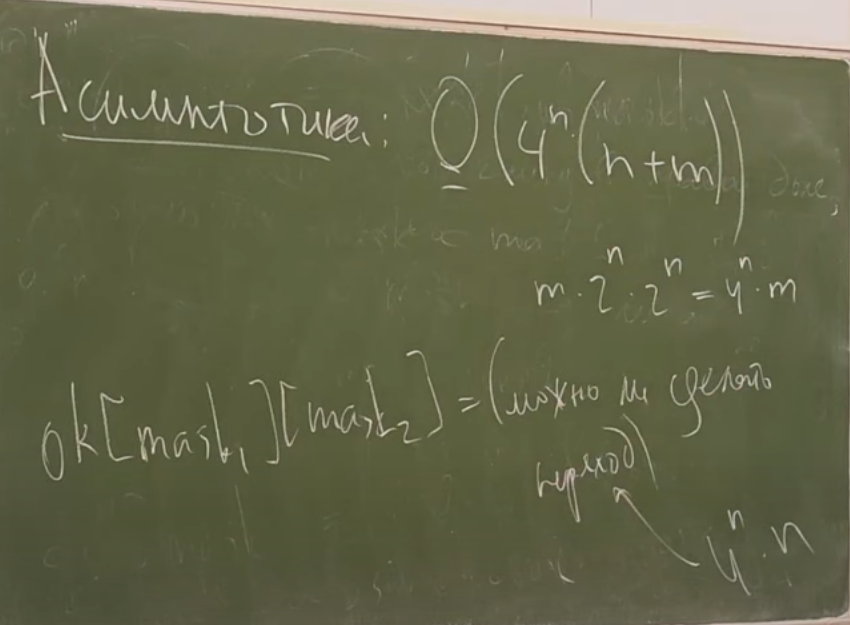 Асимптотика: O(4ⁿ·(n+m))
m·2ⁿ·2ⁿ=4ⁿ·m
ok[mask₁][mask₂]=(можно ли сделать
переход)
4ⁿ·n